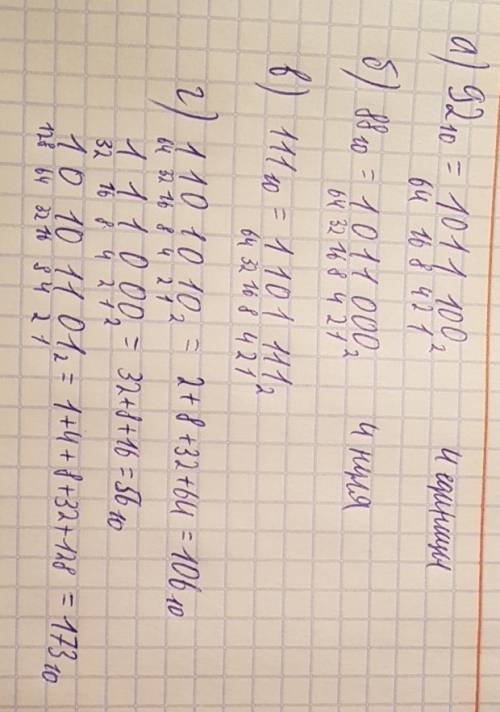 а) 92₁₀ = 1011 100₂ 4 единицы
64 16 8 4 2 1
б) 88₁₀ = 1011 000₂ 4 нуля
64 32 16 8 4 2 1
в) 111₁₀ = 1101 111₂
64 32 16 8 4 2 1
г) 1 10 10 10₂ = 2+8+32+64=106₁₀
64 32 16 8 4 2 1
1 1 1 0 00 = 32+8+16=56₁₀
32 16 8 4 2 1 2
1 0 10 11 01₂ = 1+4+8+32+128 = 173₁₀
128 64 32 16 8 4 2 1